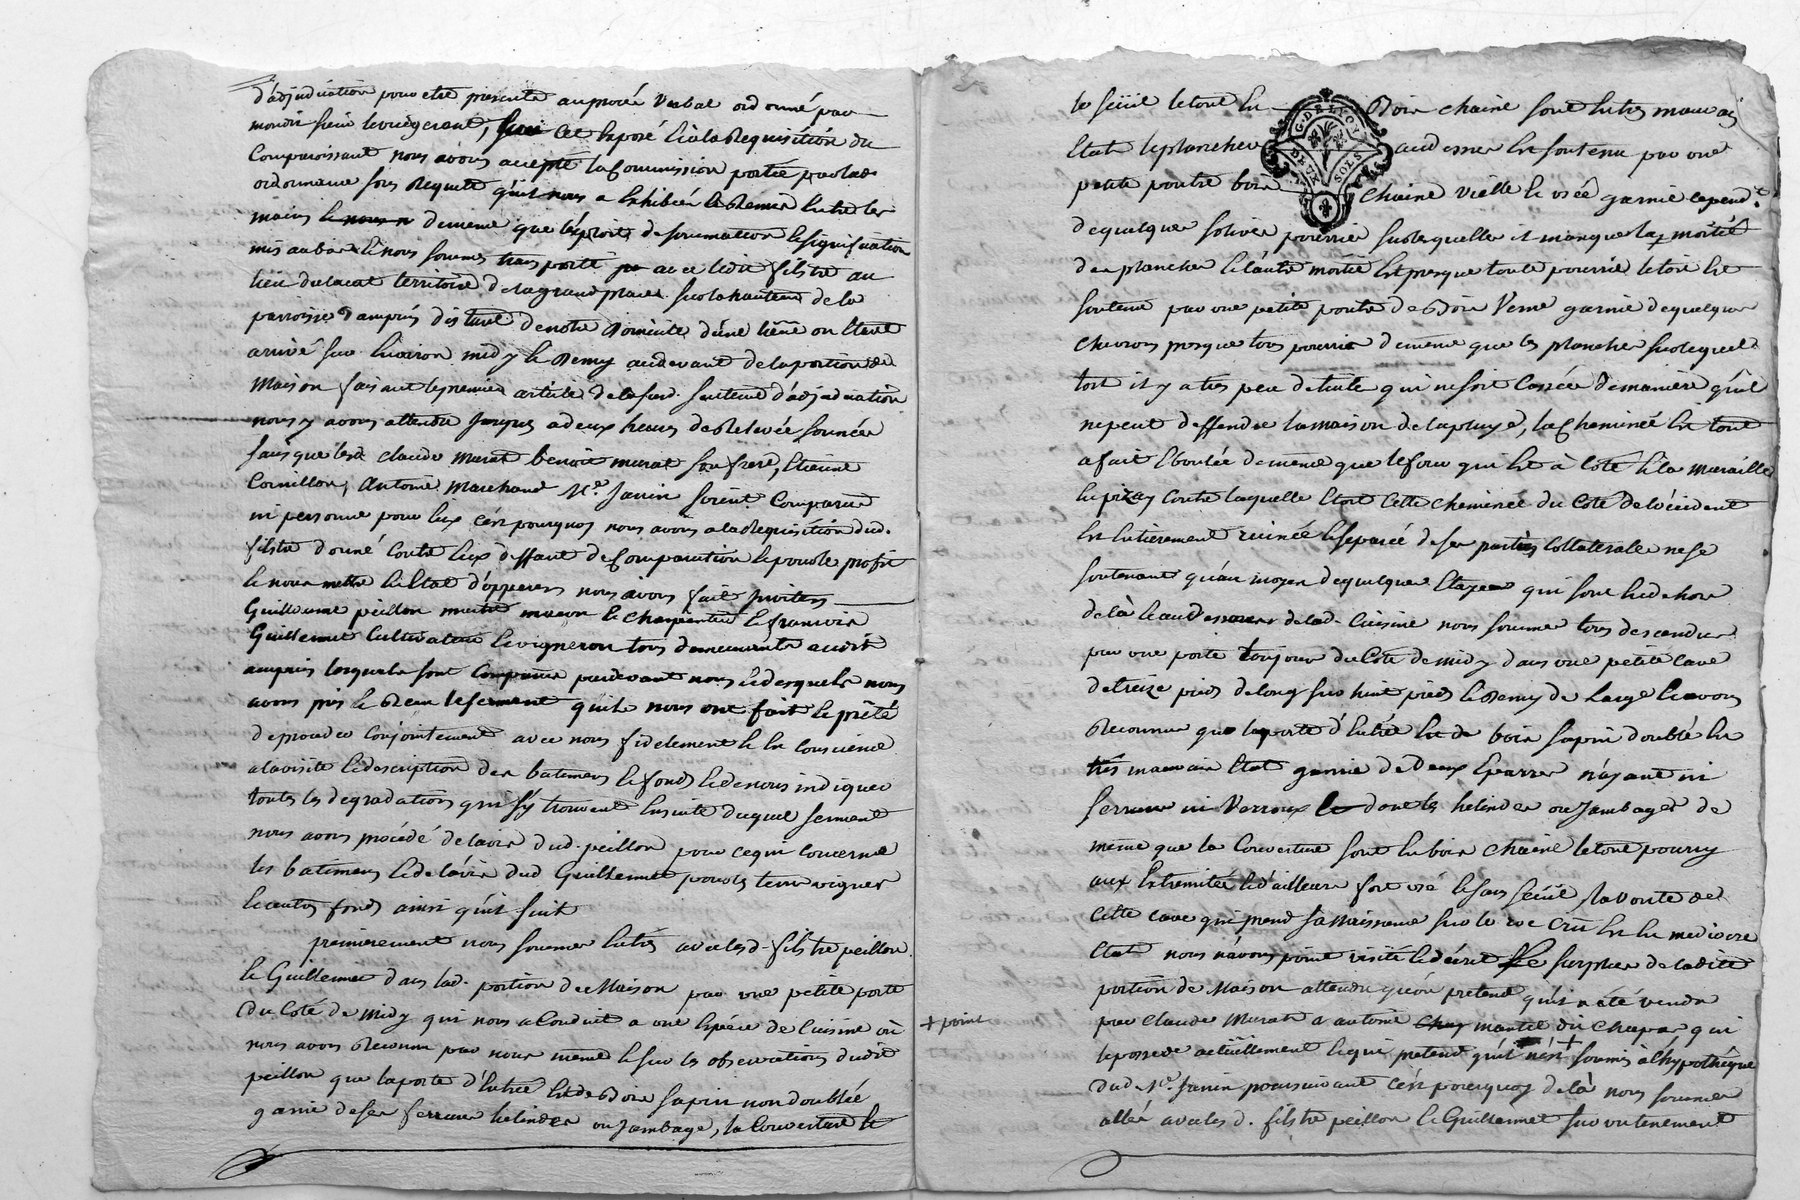 d'adjudication pour etre presenté au procés verbal ordonné par
mondit sieur le viegerant, sur cet exposé et a la Requisition du
Comparoissant nous avons accepté la Commission portée par lad.
ordonnance sous Requete qu'il nous a exhibée et Remis entre les
mains de meme que l'exploit de sommation et signification
mis au bas et nous sommes transporté avec ledit filstre au
lieu du lacat territoire de la grand place sur la hauteur de la
parroisse d'ampuis distant de notre Domicile d'une lieüe ou etant
arrivé sur l'environ midy et Demy au devant de la portion de
Maison faisant le premier article de lad. sentence d'adjudication
nous y avons attendu jusques a deux heures de Relevée sonnées
sans que led. claude murat benoit murat son frere, Etienne
Cornillon, Antoine Marchand Me. Janin soient Comparus
ni personne pour eux c'est pourquoy nous avons a la Requisition dud.
filstre donné Contre eux deffaut de Comparution et pour le profit
et nous mettre En Etat d'opperer nous avons fait inviter
Guillaume peillon maitre macon et charpentier et francois
Guillermet Cultivateur et vigneron tous demeurants audit
ampuis lesquels sont Comparus pardevant nous et desquels nous
avons pris et Recu le serment qu'ils nous ont fait et prété
de proceder Conjointement avec nous fidelement et en Conscience
a la visite et description des batimens et fonds et de nous indiquer
toutes les degradations qui s'y trouvent Ensuite duquel serment
nous avons procédé de l'avis dud. peillon pour ce qui Concerne
les batimens et de l'avis dud Guillermet pour les terres vignes
et autres fonds ainsi qu'il suit
premierement nous sommes Entrés avec lesd. filstre peillon
et Guillermet dans lad. portion de Maison par une petite porte
du Coté de midy qui nous a Conduit a une Espece de Cuisine ou
nous avons Reconnu par nous méme et sur les observations dudit
peillon que la porte d'Entrée Est de Bois sapin non doublée
garnie de ses ferrures et linder ou jambages, la Couverture et
le seüil le tout En Bois chaine sont En tres mauvais
Etat le plancher au dessus Est soutenu par une
petite poutre bois Chaine vielle et usée garnie cepend.t
de quelques solives pourries sur lesquelles il manque la moitié
des plancher et l'autre moitié Est presque toute pourrie, le toit Est
soutenu par une petite poutre de Bois Verne garnie de quelques
chevrons presque tous pourris de meme que les plancher sur lequel
toit il y a tres peu de tuile qui ne soit Cassée de maniere qu'il
ne peut deffendre la maison de la pluye, la Cheminée Est tout
a fait Eboulée de méme que le four qui Est à Coté et la muraille
En pizay Contre laquelle Etoit Cette cheminée du Coté de l'occident
Est Entierement ruinée et separée de ses parties Collaterale ne se
soutenant qu'au moyen de quelques Etayes qui sont En dehors
de là et au dessous de lad. Cuisine nous sommes tous descendus
par une porte toujours du Coté de midy dans une petite Cave
de treize pieds de long sur huit pieds et Demy de Large et avons
Reconnu que la porte d'Entrée Est de bois sapin doublé En
trés mauvais Etat garnie de Deux Eparres n'ayant ni
serrure ni Verroux dont les helinder ou jambages de
meme que la Couverture sont En bois chaine le tout pourry
aux Extremités et d'ailleurs fort usé et sans seüil, la voute de
Cette cave qui prend sa Naissance sur le roc Crü Est En mediocre
Etat nous n'avons point visité et décrit le surplus de ladite
portion de Maison attendu qu'on pretend qu'il a été vendu
par claude Murat a antoine martel dit chapas qui
le possede actüellement et qui pretend qu'il n'est + soumis à l'hypothéque
+ point
dud. Me. Janin poursuivant c'est pourquoy de là nous sommes
allés avec lesd. filstre peillon et Guillermet sur un tenement
G. DE LYON
DEUX SOLS